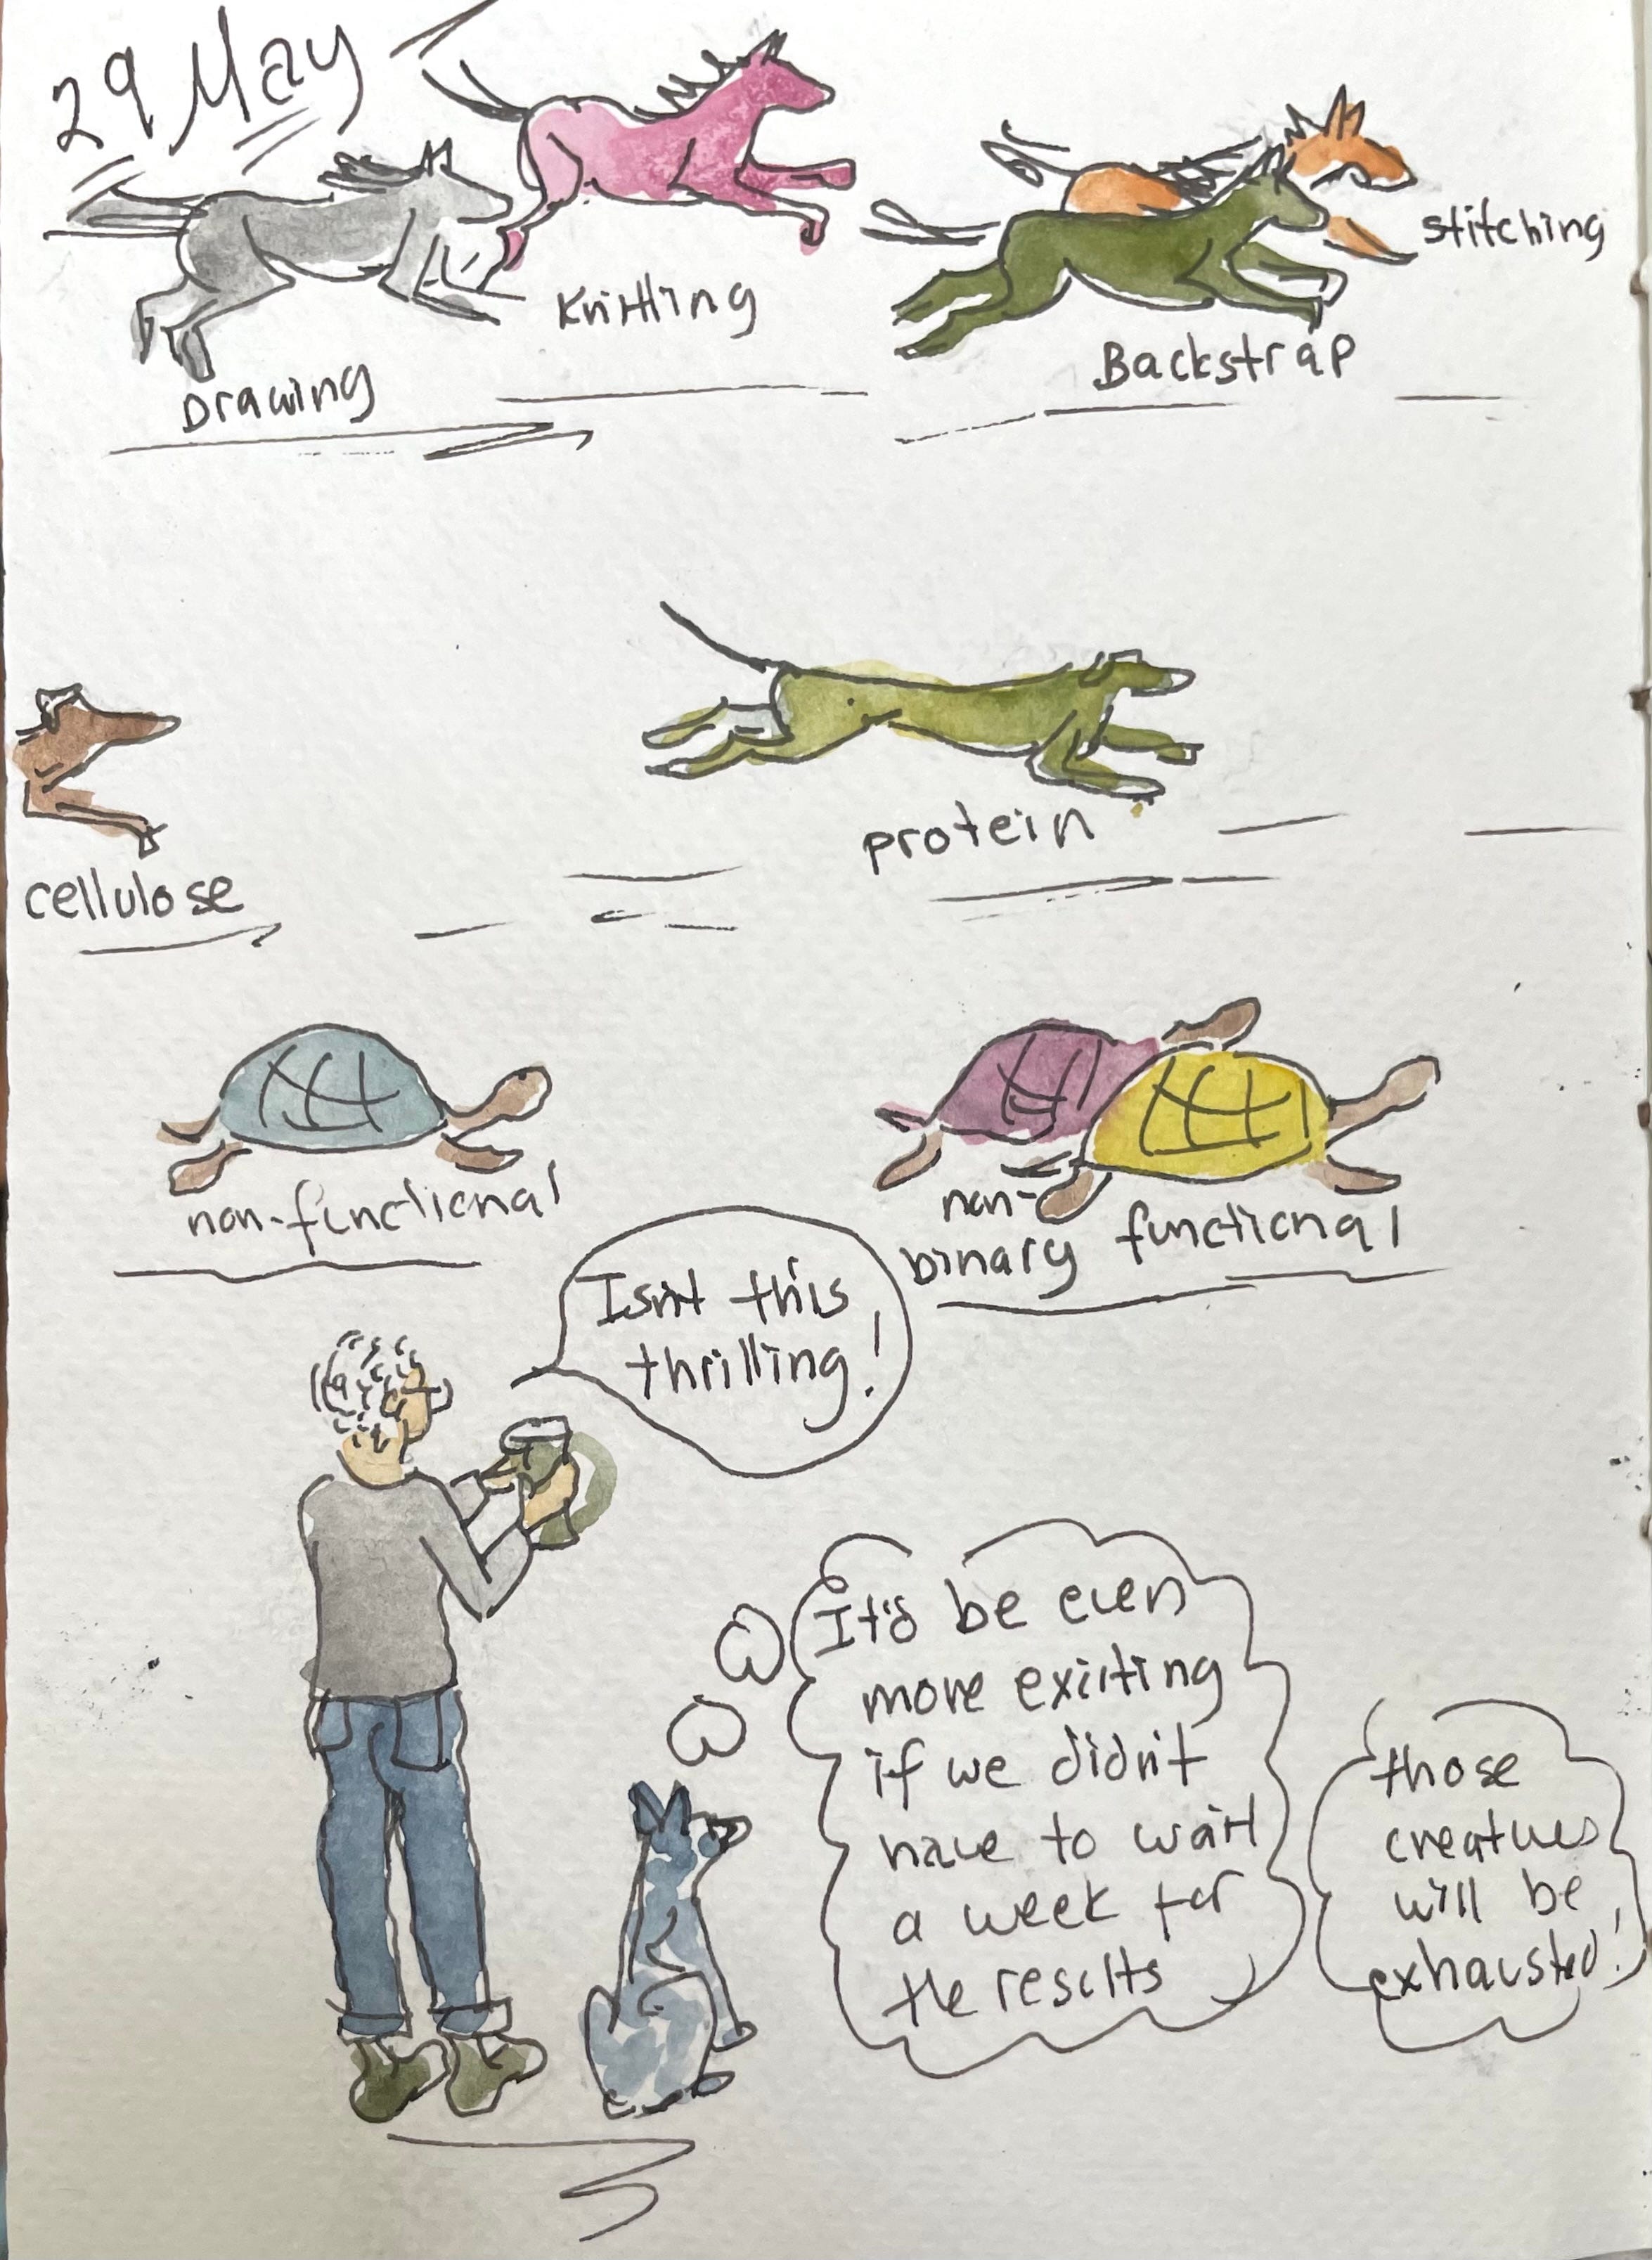 29 May
Knitting
Drawing
stitching
Backstrap
protein
cellulose
non-functional
non-
binary
functional
Isn't this
thrilling!
It'd be even
more exicting
if we didn't
have to wait
a week for
the results
those
creatures
will be
exhausted!